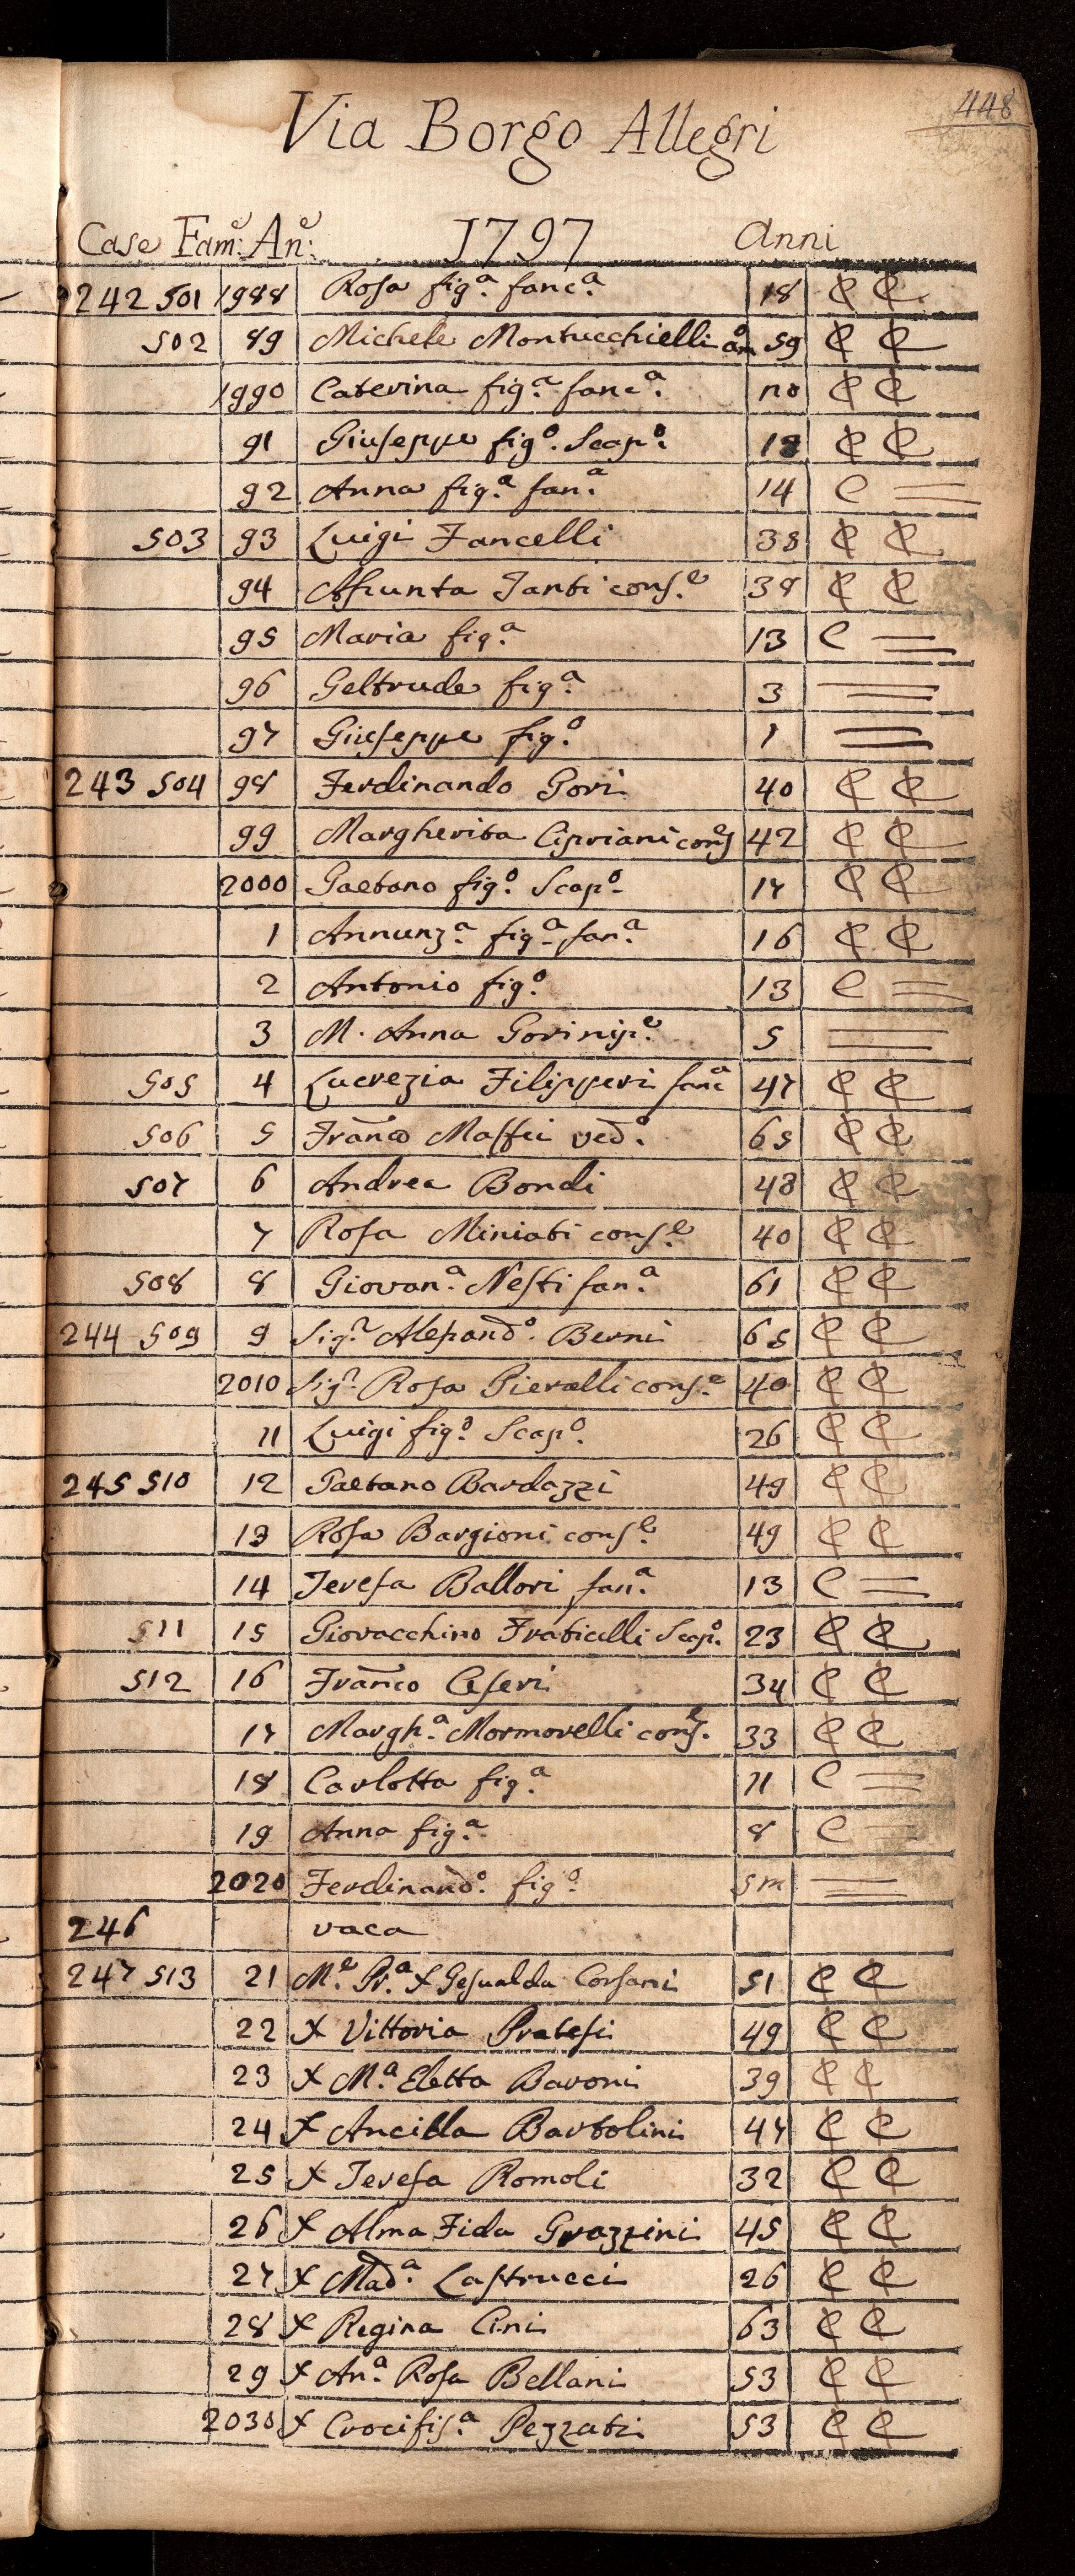 448
Via Borgo Allegri
Case Fam:e An:e 1797 Anni
242 501 1988 Rosa fig.a fanc.a 18 C C
502 89 Michele Montucchielli 59 C C
1990 Caterina fig.a fanc.a 20 C C
91 Giuseppe fig.o Scap.o 18 C C
92 Anna fig.a fan.a 14 C
503 93 Luigi Fancelli 38 C C
94 Assunta Santi cons.e 38 C C
95 Maria fig.a 13 C
96 Geltrude fig.a 3
97 Giuseppe fig.o 1
243 504 98 Ferdinando Gori 40 C C
99 Margherita Cipriani cons.e 42 C C
2000 Gaetano fig.o Scap.o 17 C C
1 Annunz.a fig.a fan.a 16 C C
2 Antonio fig.o 13 C
3 M. Anna Gori nip.e 5
505 4 Lucrezia Filipperi fanc.a 47 C C
506 5 Franco Maffei ved.o 65 C C
507 6 Andrea Bondi 48 C C
7 Rosa Miniati cons.e 40 C C
508 8 Giovan.a Nesti fan.a 61 C C
244 509 9 Sig.r Alessand.o Berni 65 C C
2010 Sig.r Rosa Pieralli cons.e 40 C C
11 Luigi fig.o Scap.o 26 C C
245 510 12 Gaetano Bardazzi 49 C C
13 Rosa Bargioni cons.e 49 C C
14 Teresa Ballori fan.a 13 C
511 15 Giovacchino Fraticelli Scap.o 23 C C
512 16 Franco Ceseri 34 C C
17 Margh.a Mormorelli cons.e 33 C C
18 Carlotta fig.a 11 C
19 Anna fig.a 8 C
2020 Ferdinand.o fig.o 5m
246 vaca
247 513 21 M.e Pr.a X Gesualda Corsani 51 C C
22 X Vittoria Pratesi 49 C C
23 X M.a Eletta Baroni 39 C C
24 X Ancilla Bartolini 47 C C
25 X Teresa Romoli 32 C C
26 X Alma Fida Grazzini 45 C C
27 X Mad.a Lastrucci 26 C C
28 X Regina Cini 63 C C
29 X An.a Rosa Bellani 53 C C
2030 X Crocifis.a Pezzati 53 C C